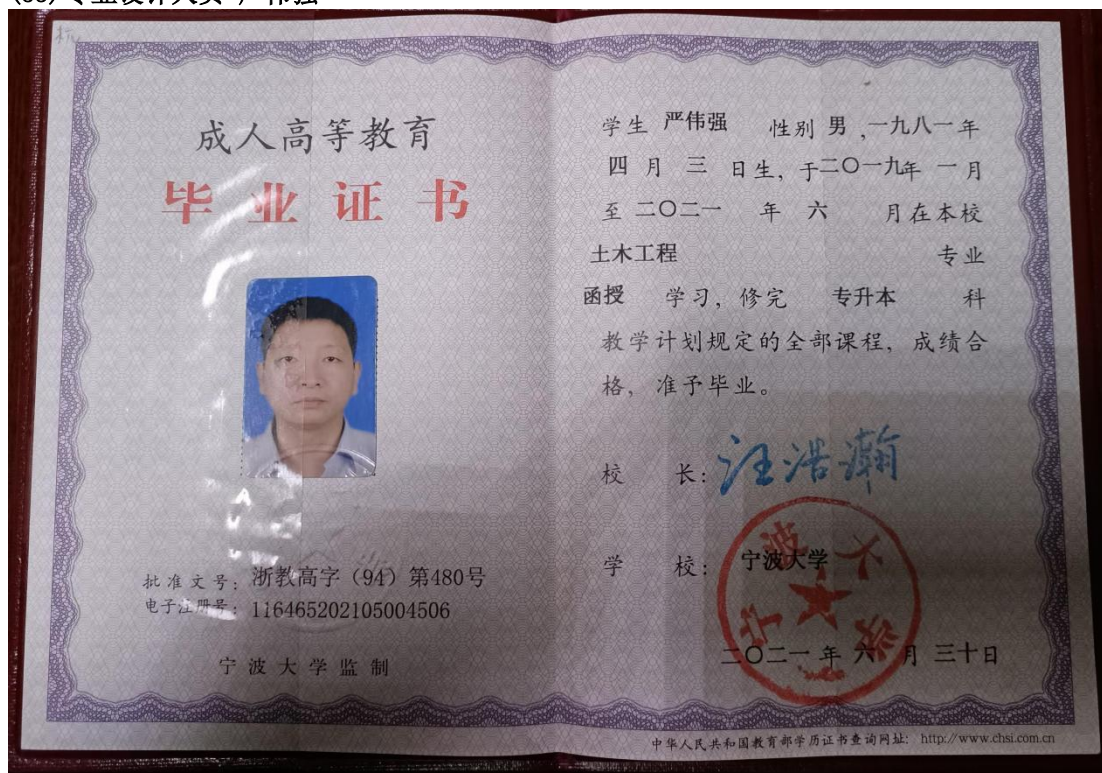 成人高等教育
毕业证书
批准文号：浙教高字（94）第480号
电子注册号：116465202105004506
宁波大学监制
学生 严伟强 性别 男，一九八一年
四 月 三 日生，于二〇一九年 一 月
至 二〇二一 年 六 月在本校
土木工程 专业
函授 学习，修完 专升本 科
教学计划规定的全部课程，成绩合
格，准予毕业。
校 长：汪浩瀚
学 校：宁波大学
宁波大学
二〇二一 年 六 月 三十日
中华人民共和国教育部学历证书查询网址：http://www.chsi.com.cn